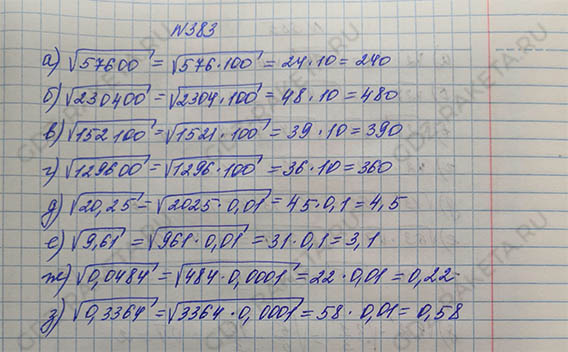 №383
а) √57600 = √576·100 = 24·10 = 240
б) √230400 = √2304·100 = 48·10 = 480
в) √152100 = √1521·100 = 39·10 = 390
г) √129600 = √1296·100 = 36·10 = 360
д) √20,25 = √2025·0,01 = 45·0,1 = 4,5
е) √9,61 = √961·0,01 = 31·0,1 = 3,1
ж) √0,0484 = √484·0,0001 = 22·0,01 = 0,22
з) √0,3364 = √3364·0,0001 = 58·0,01 = 0,58
GDZ-RAKETA.RU